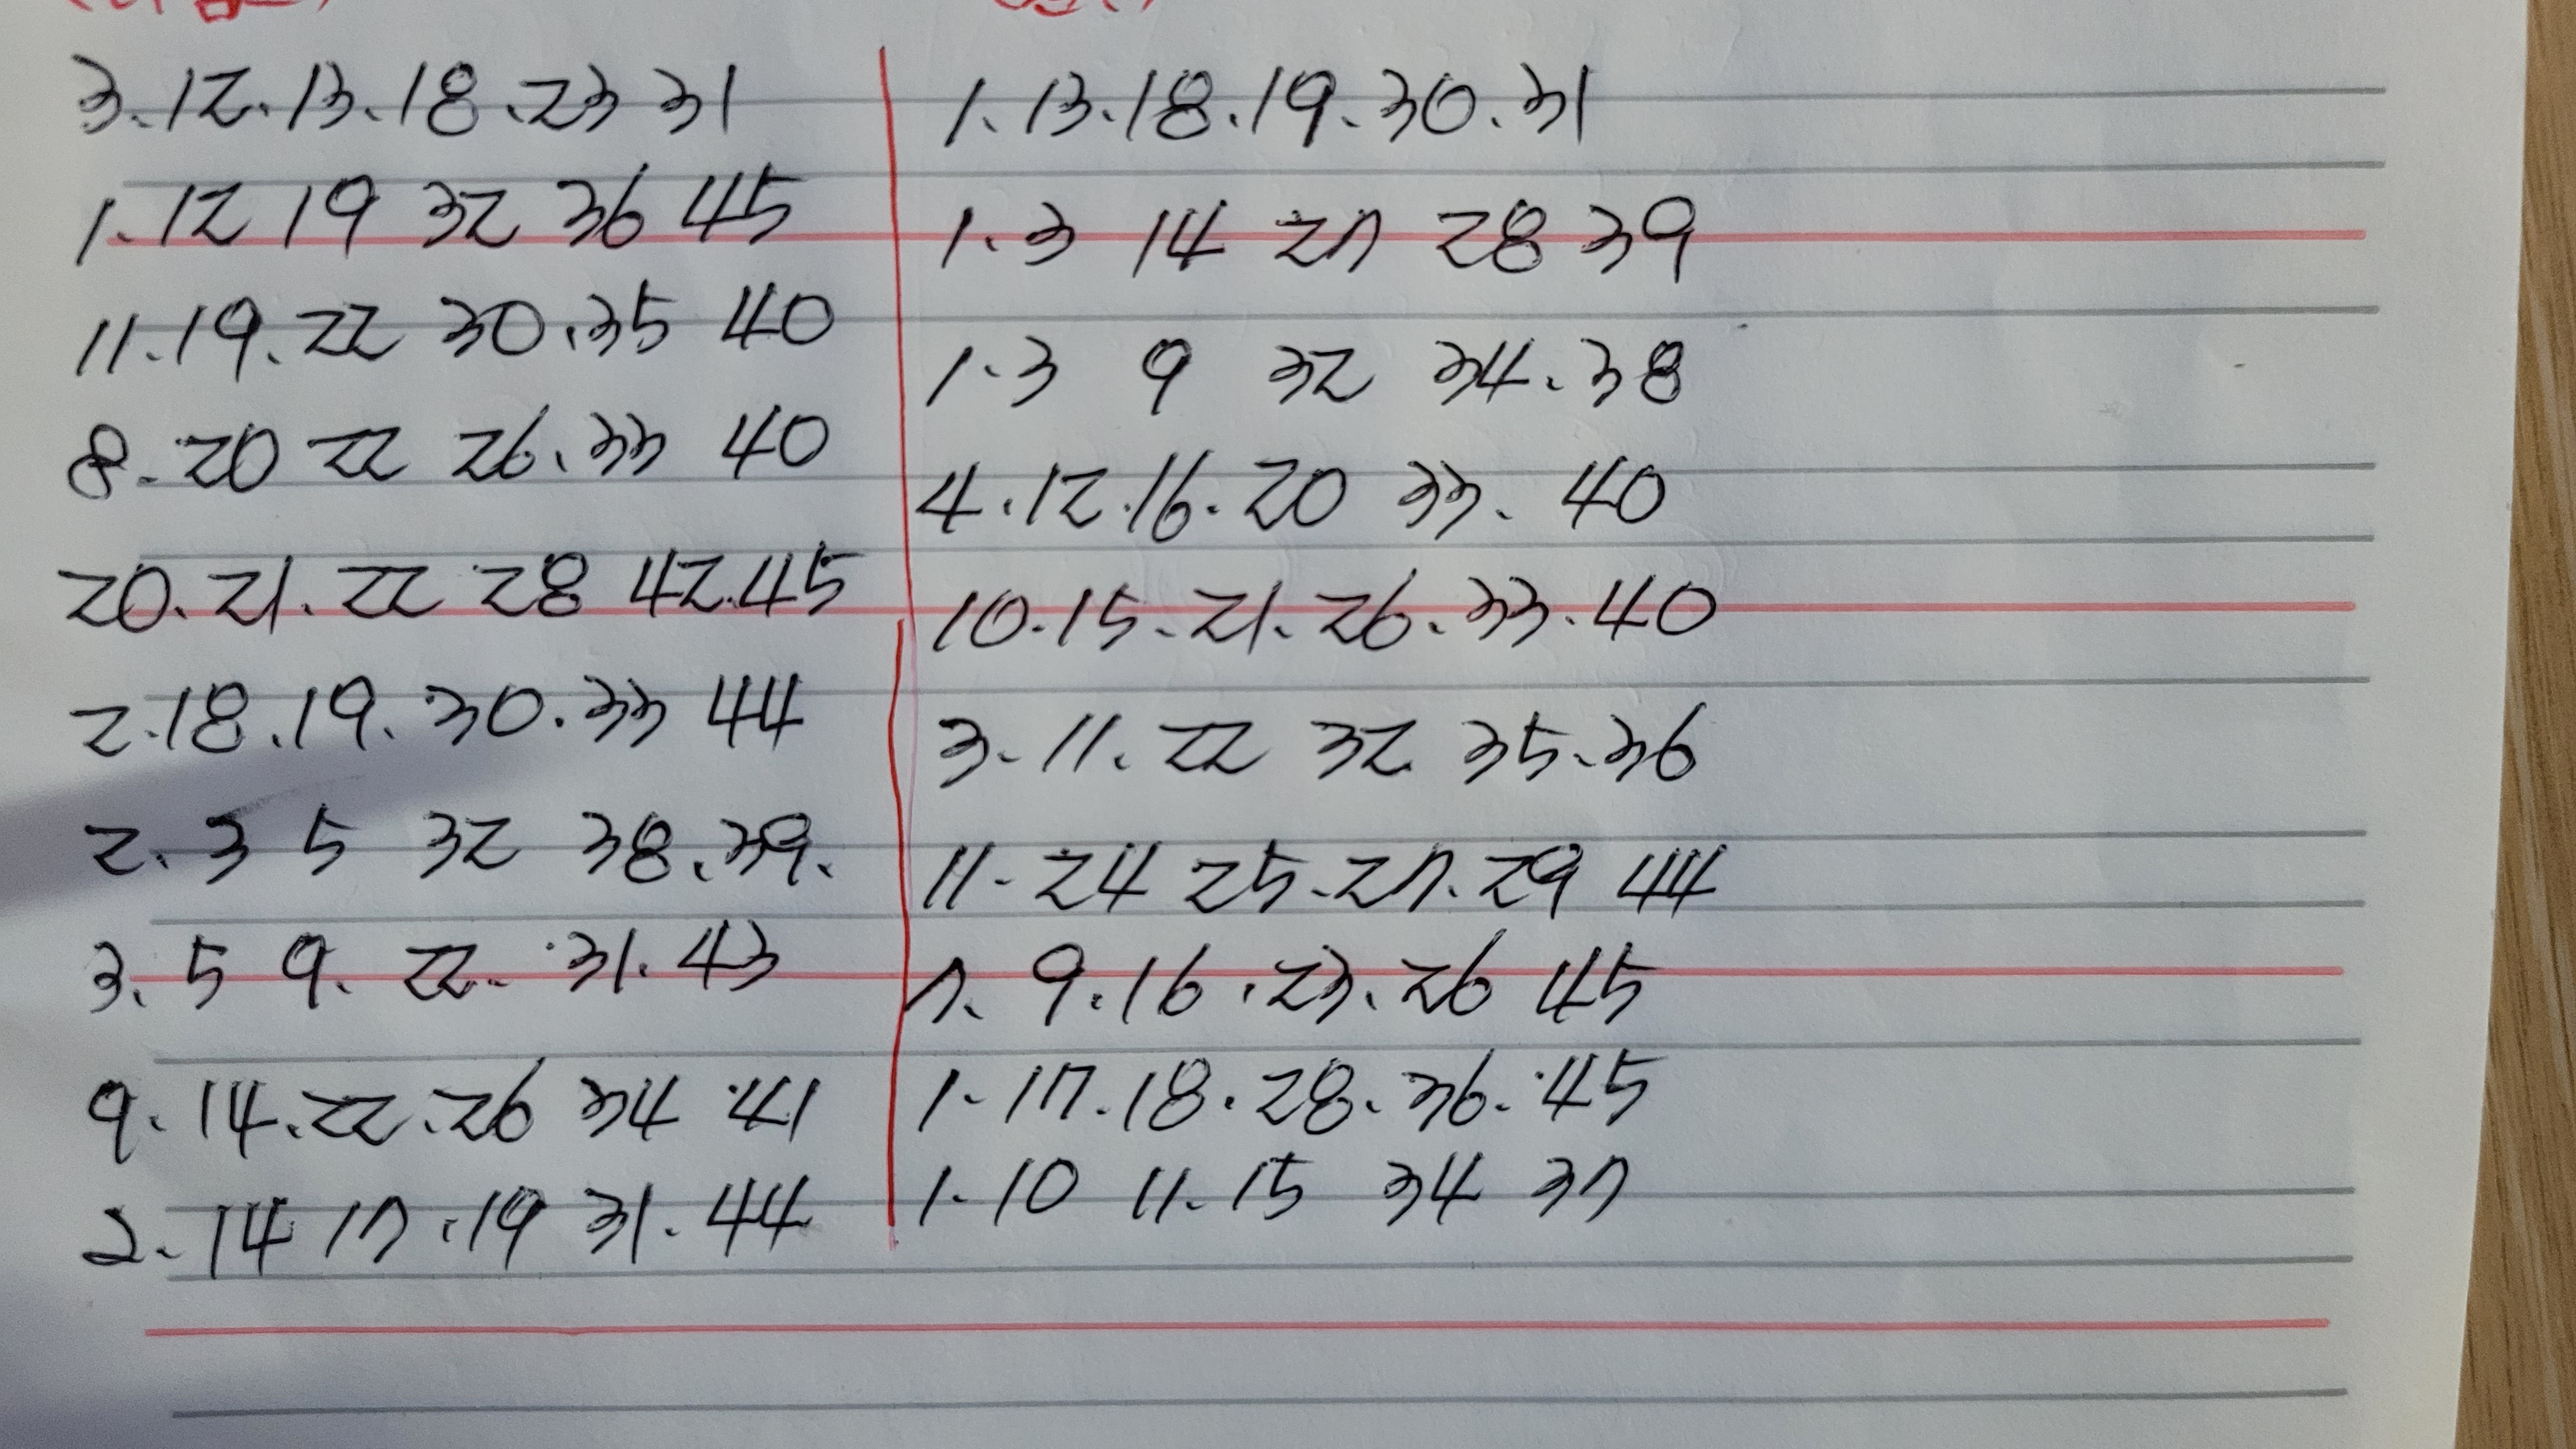 3. 12. 13. 18. 23 31
1. 12 19 32 36 45
11. 19. 22 30. 35 40
8. 20 22 26. 33 40
20. 21. 22 28 42. 45
2. 18. 19. 30. 33 44
2. 3 5 32 38. 39.
3. 5 9. 22. 31. 43
9. 14. 22. 26 34 41
2. 14 17. 19 31. 44
1. 13. 18. 19. 30. 31
1. 3 14 27 28 39
1. 3 9 32 34. 38
4. 12. 16. 20 33. 40
10. 15. 21. 26. 33. 40
3. 11. 22 32 35. 36
11. 24 25. 27. 29 44
7. 9. 16. 23. 26 45
1. 17. 18. 28. 36. 45
1. 10 11. 15 34 37